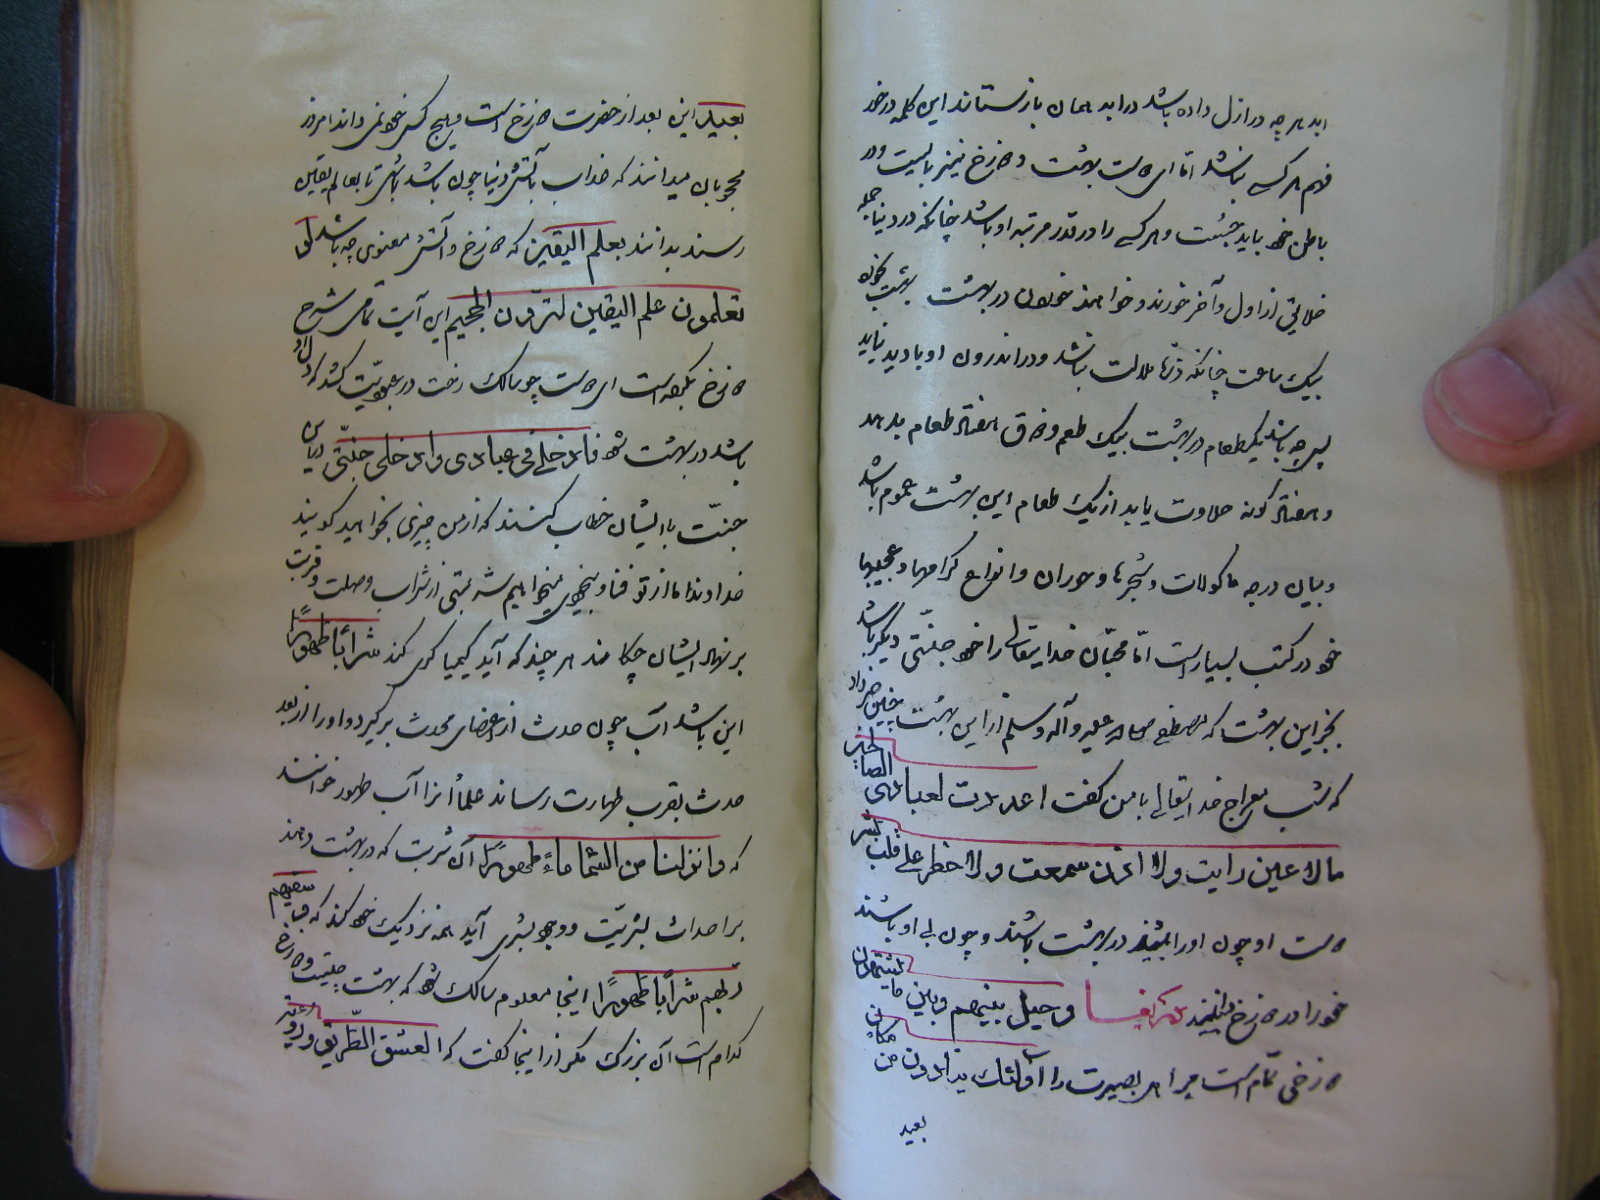 ابد هر چه در ازل داده باشد در ابد همان باز ستاند این کلمه در خور
فهم هر کسی نباشد اما ای دوست بهشت و دوزخ نیز با تست و در
باطن خود باید جست و هر کسی را در قدر مرتبه او باشد چنانکه در دنیا جمله
خلایق از اول و آخر خورند و خواهند خوردن در بهشت بهشت بخورد
بیک ساعت چنانکه ذرّها ملالت نباشد و در اندرون او بادید نیاید
پس چه باشد یک طعام در بهشت بیک طعم و ذوق هفتاد طعام بدهد
و هفتاد گونه حلاوت یابد از یک طعام این بهشت عموم باشد
و بیان درجه ماکولات و شجرها و حوران و انواع کرامتها و عجیبها
خود در کتب بسیار است امّا محبّان خدایتعالی را خود جنّتی دیگر باشد
بجز این بهشت که مصطفی صلی الله علیه و آله و سلم از این بهشت چنین خبر داد
که شب معراج خدایتعالی با من گفت اعددت لعبادی الصالحین
ما لا عین رایت ولا اذن سمعت ولا خطر علی قلب بشر
دوست او چون او را بیند در بهشت باشند و چون بی او باشند
خود را در دوزخ وحیل بینهم وبین ما یشتهون
دوزخی تمام است مر اهل بصیرت را اولئک ینادون من مکان
بعید
بعید این بعد از حضرت دوزخ است و هیچ کس خود نمی داند امروز
محجوبان میدانند که عذاب بآتش دنیا چون باشد باش تا بعالم یقین
رسند بدانند بعلم الیقین که دوزخ و آتش معنوی چه باشد لو
تعلمون علم الیقین لترون الجحیم این آیت تمامی شرح
دوزخ بکرده است ای دوست چو سالک رخت در عبودیت کشد که دل او
باشد در بهشت شود فادخلی فی عبادی وادخلی جنّتی در این
جنّت با ایشان خطاب کنند که از من چیزی بخواهید گویند
خداوندا ما از تو فنا و بیخودی میخواهیم شربتی از شراب وصلت و قربت
بر نهاد ایشان چکانند هر چند که آید کیمیا گری کند شرابًا طهورًا
این باشد آب چون حدث از اعضای محدث برگیرد و او را از بعد
حدث بقرب طهارت رساند علما آنرا آب طهور خوانند
که وانزلنا من السّماء ماءً طهورًا آن شربت که در بهشت دهند
بر احداث بشریّت و وجود بشری آید همه نزدیک خود کند که وسقیهم
ربّهم شرابًا طهورًا اینجا معلوم سالک شود که بهشت چیست و دوزخ
کدام است آن بزرگ مگر از اینجا گفت که العشق الطّریق و رؤیة